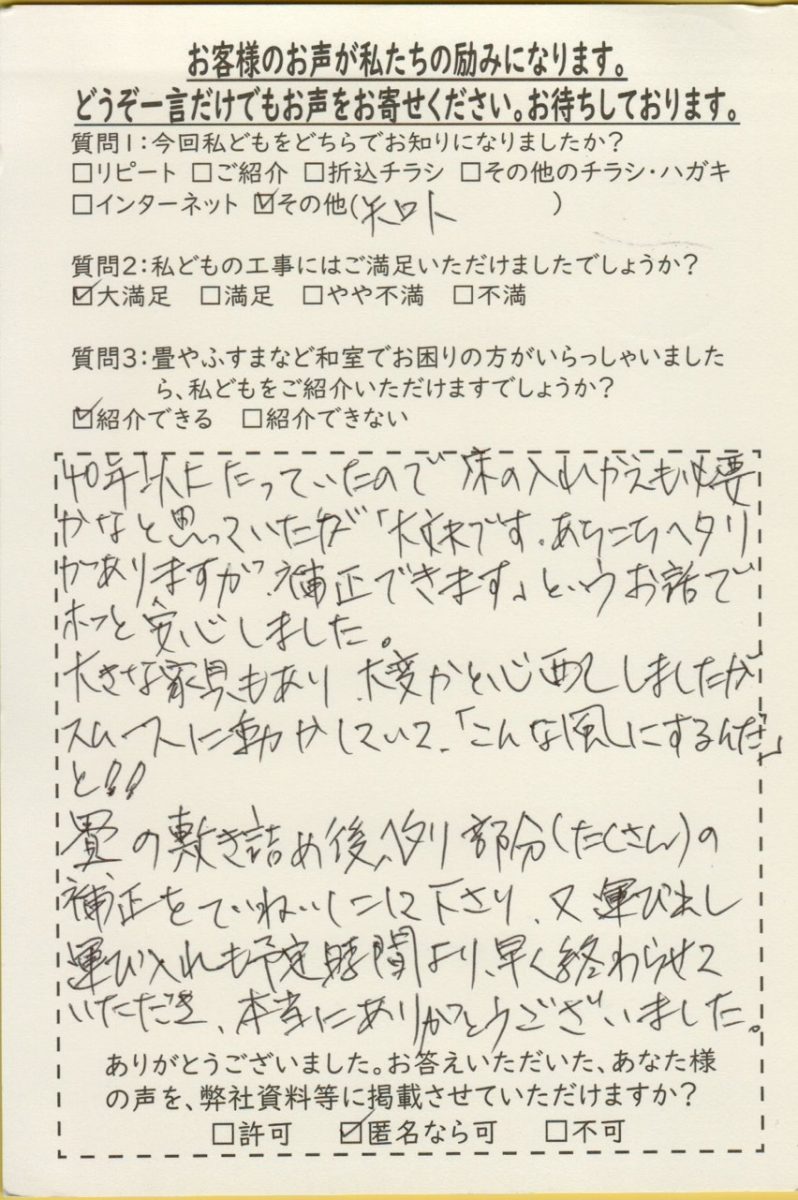 お客様のお声が私たちの励みになります。
どうぞ一言だけでもお声をお寄せください。お待ちしております。
質問1:今回私どもをどちらでお知りになりましたか?
□リピート □ご紹介 □折込チラシ □その他のチラシ・ハガキ
□インターネット ☑その他( )
質問2:私どもの工事にはご満足いただけましたでしょうか?
☑大満足 □満足 □やや不満 □不満
質問3:畳やふすまなど和室でお困りの方がいらっしゃいました
ら、私どもをご紹介いただけますでしょうか?
☑紹介できる □紹介できない
40年以上たっていたので床の入れかえも必要
かなと思っていたが「大丈夫です。あちこちヘタリ
がありますが、補正できます」というお話で
ホッと安心しました。
大きな家具もあり、大変かと心配しましたが
スムースに動かしていて、「こんな風にするんだ」
と!!
畳の敷き詰め後、ヘタリ部分(たくさん)の
補正をていねいにして下さり、又運び出し
運び入れも予定時間より、早く終わらせて
いただき、本当にありがとうございました。
ありがとうございました。お答えいただいた、あなた様
の声を、弊社資料等に掲載させていただけますか?
□許可 ☑匿名なら可 □不可